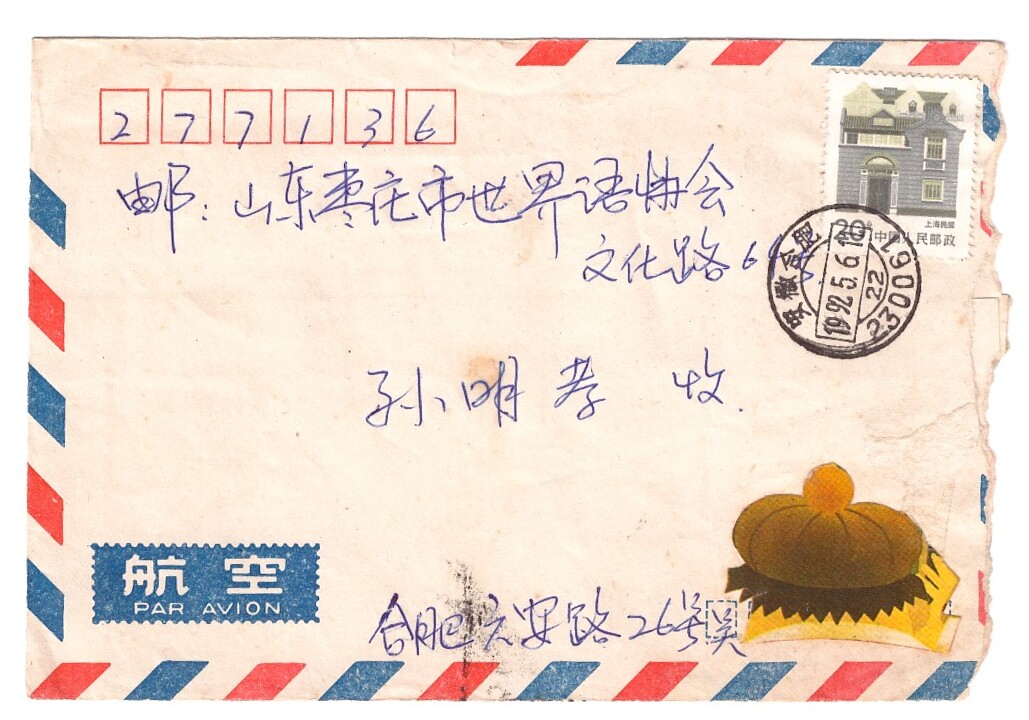 277136
邮：山东枣庄市世界语协会
文化路6
孙明孝 收
上海民居
20分 中国人民邮政
安徽合肥
1992.5.6.1
22
230061
航空
PAR AVION
合肥六安路26号吴